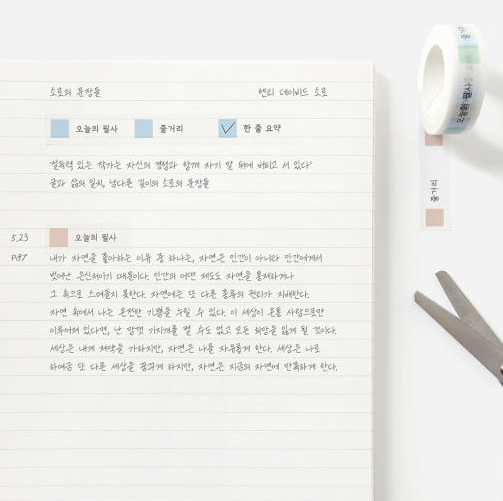 소로의 문장들 헨리 데이비드 소로
오늘의 필사 줄거리 한 줄 요약
"설득력 있는 작가는 자신의 경험과 함께 자기 말 뒤에 버티고 서 있다"
글과 삶의 일치, 남다른 깊이의 소로의 문장들
5.23 오늘의 필사
P.87 내가 자연을 좋아하는 이유 중 하나는, 자연은 인간이 아니라 인간에게서
벗어난 은신처이기 때문이다. 인간의 어떤 제도도 자연을 통제하거나
그 속으로 스며들지 못한다. 자연에는 또 다른 종류의 권리가 지배한다.
자연 속에서 나는 온전한 기쁨을 누릴 수 있다. 이 세상이 온통 사람으로만
이루어져 있다면, 난 맘껏 기지개를 켤 수도 없고 모든 희망을 잃게 될 것이다.
세상은 내게 제약을 가하지만, 자연은 나를 자유롭게 한다. 세상은 나로
하여금 또 다른 세상을 꿈꾸게 하지만, 자연은 지금의 자연에 만족하게 한다.
오늘의 필사
줄거리